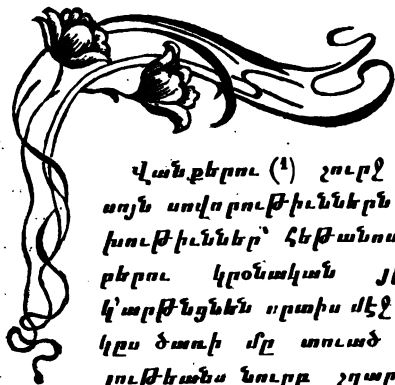 վանքերու (¹) շուրջ
սոյն սովորութիւններն
խութիւններ՝ հեթանոս
բերու կրօնական յ
կ՚արթնցնեն սրտիս մէջ
կըս ծառի մը տուած
լութեանս նուրբ